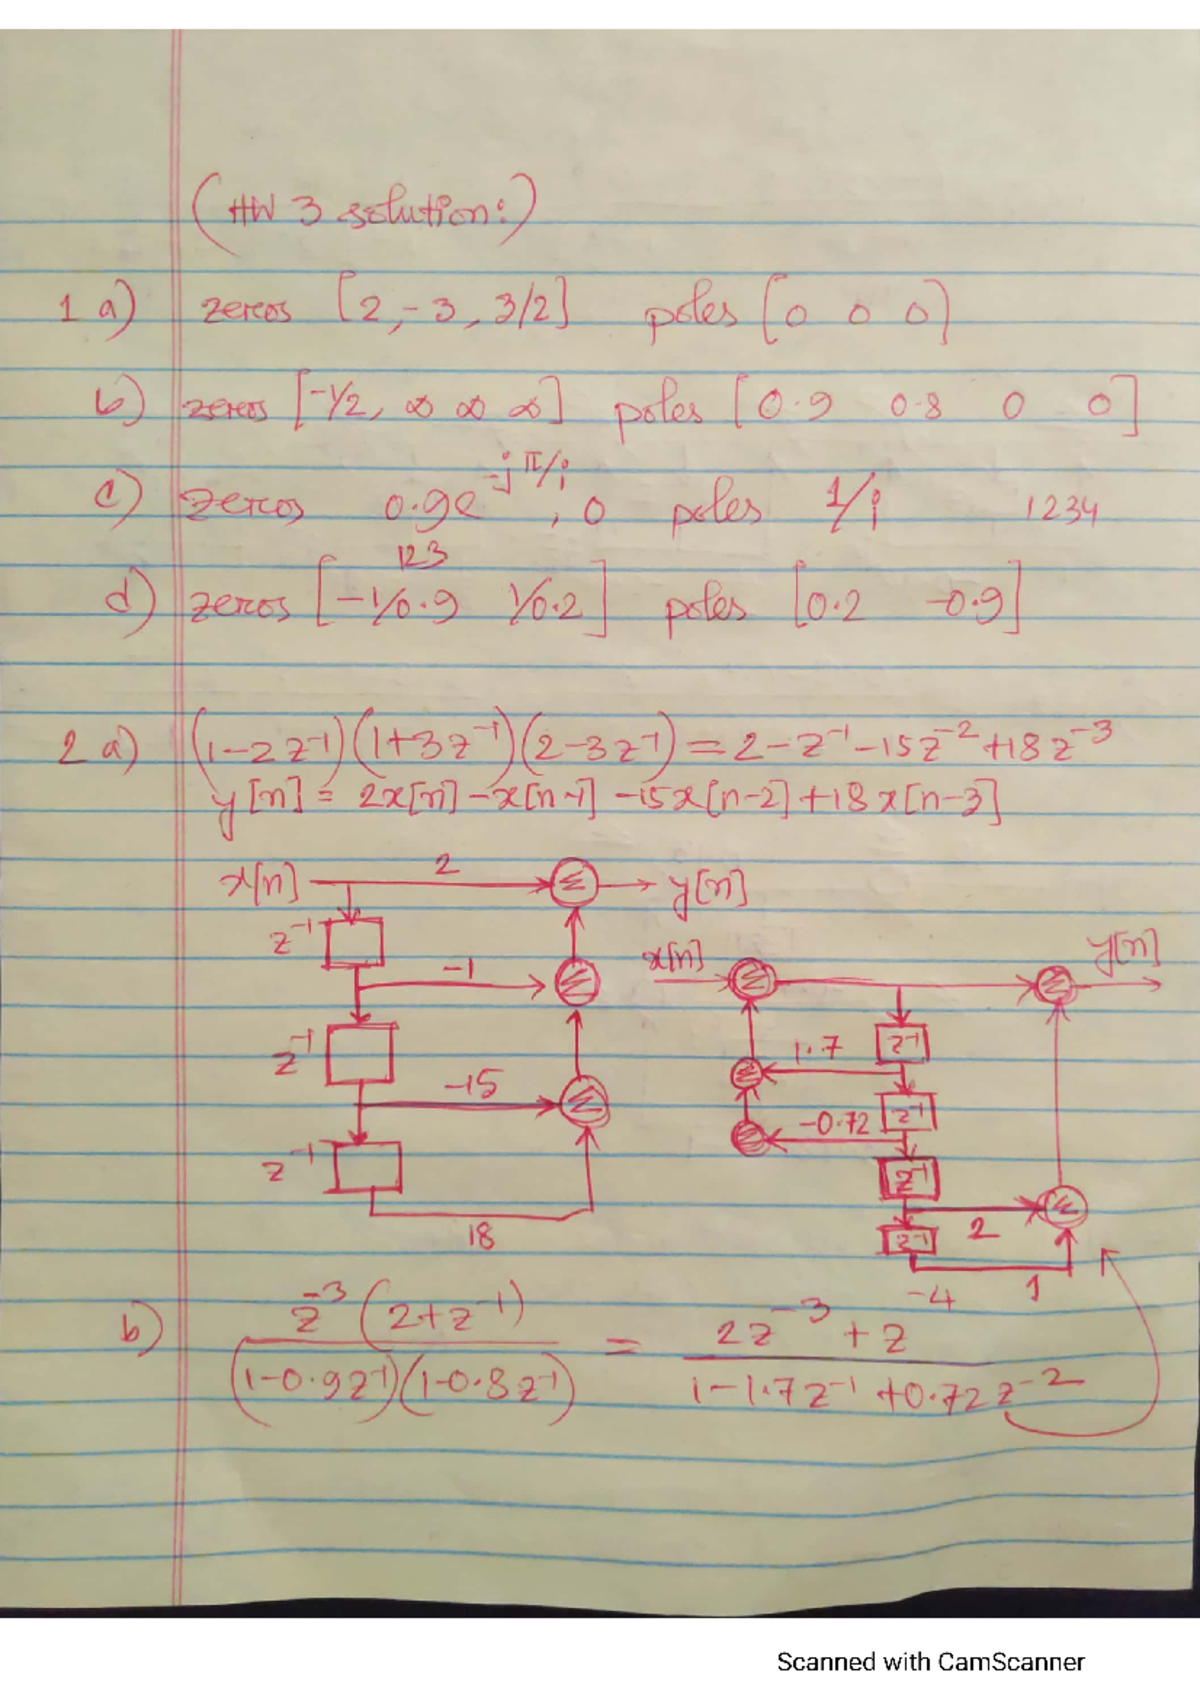 (HW 3 solution:)
1 a) zeros [2, -3, 3/2] poles [0 0 0]
b) zeros [-1/2, ∞ ∞ ∞] poles [0.9 0.8 0 0]
c) zeros 0.9e^{-jπ/i}, 0 poles 1/i 1234
123
d) zeros [-1/0.9 1/0.2] poles [0.2 -0.9]
2 a) (1-2z^{-1})(1+3z^{-1})(2-3z^{-1}) = 2-z^{-1}-15z^{-2}+18z^{-3}
y[n] = 2x[n]-x[n-1]-15x[n-2]+18x[n-3]
x[n] 2 Σ y[n]
z^{-1}
-1 Σ
z^{-1}
-15 Σ
z^{-1}
18
x[n] Σ Σ y[n]
z^{-1}
Σ 1.7
z^{-1}
Σ -0.72
z^{-1}
2 Σ
z^{-1}
1
b) z^{-3}(2+z^{-1}) / (1-0.9z^{-1})(1-0.8z^{-1}) = 2z^{-3}+z^{-4} / 1-1.7z^{-1}+0.72z^{-2}
Scanned with CamScanner